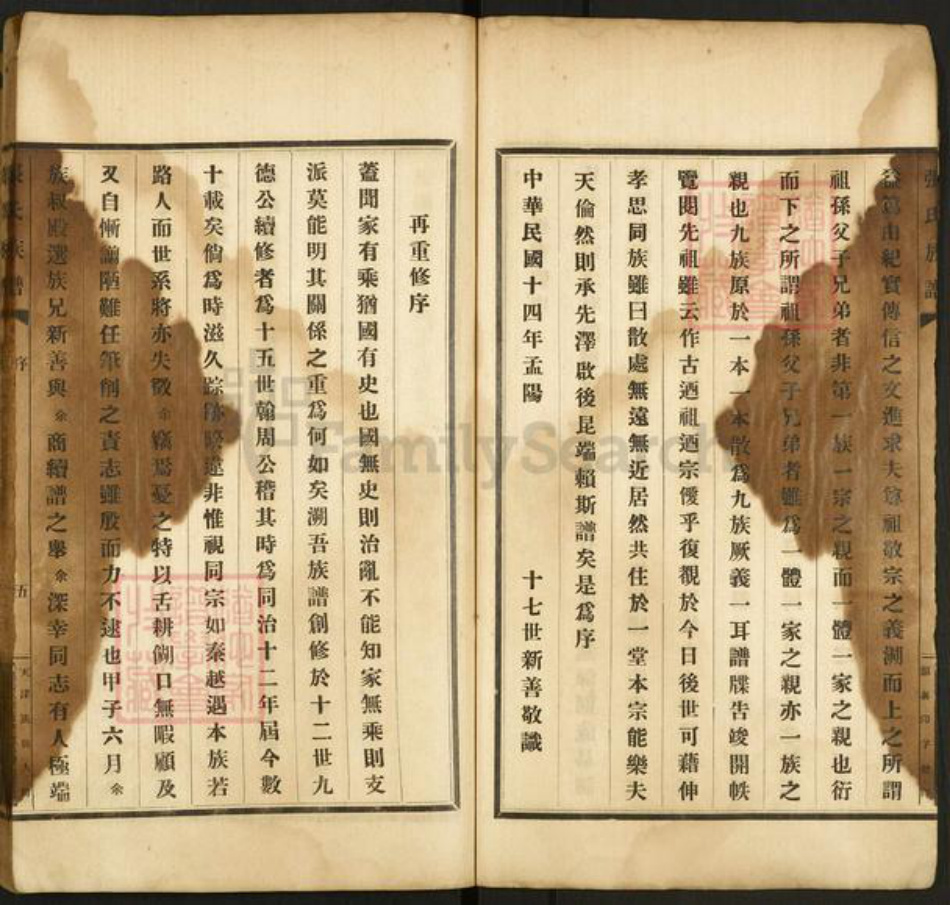 張氏族譜
益篤由紀實傳信之文進求夫尊祖敬宗之義溯而上之所謂
祖孫父子兄弟者非第一族一宗之親而一體一家之親也衍
而下之所謂祖孫父子兄弟者雖爲一體一家之親亦一族之
親也九族原於一本一本散爲九族厥義一耳譜牒告竣開帙
覽閱先祖雖云作古迺祖迺宗僾乎復覩於今日後世可藉伸
孝思同族雖曰散處無遠無近居然共住於一堂本宗能樂夫
天倫然則承先澤啟後昆端賴斯譜矣是爲序
中華民國十四年孟陽 十七世新善敬識
再重修序
蓋聞家有乘猶國有史也國無史則治亂不能知家無乘則支
派莫能明其關係之重爲何如矣溯吾族譜創修於十二世九
德公續修者爲十五世翰周公稽其時爲同治十二年屆今數
十載矣倘爲時滋久踪跡 遠非惟視同宗如秦越遇本族若
路人而世系將亦失徵余竊爲憂之特以舌耕餬口無暇顧及
又自慚譾陋難任筆削之責志雖殷而力不逮也甲子六月余
族叔殿選族兄新善與余商續譜之舉余深幸同志有人極端
族譜 序 五
FamilySearch